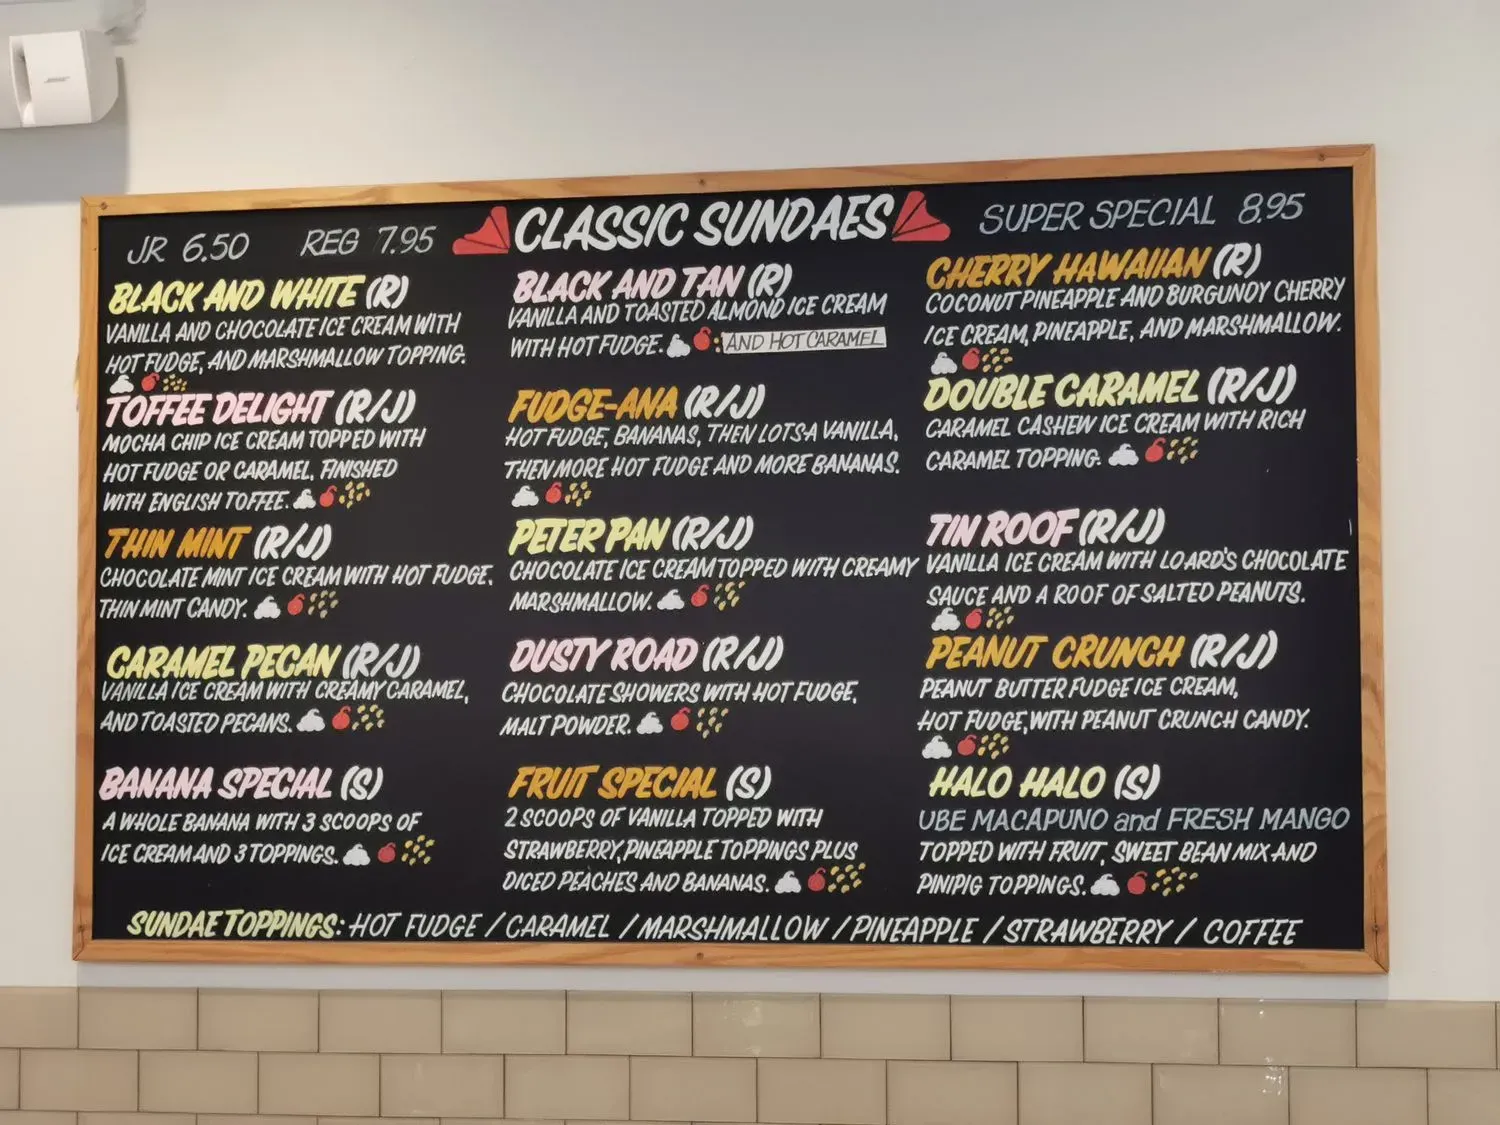 JR 6.50 REG 7.95
CLASSIC SUNDAES
SUPER SPECIAL 8.95
BLACK AND WHITE (R)
VANILLA AND CHOCOLATE ICE CREAM WITH
HOT FUDGE, AND MARSHMALLOW TOPPING.
TOFFEE DELIGHT (R/J)
MOCHA CHIP ICE CREAM TOPPED WITH
HOT FUDGE OR CARAMEL, FINISHED
WITH ENGLISH TOFFEE.
THIN MINT (R/J)
CHOCOLATE MINT ICE CREAM WITH HOT FUDGE,
THIN MINT CANDY.
CARAMEL PECAN (R/J)
VANILLA ICE CREAM WITH CREAMY CARAMEL,
AND TOASTED PECANS.
BANANA SPECIAL (S)
A WHOLE BANANA WITH 3 SCOOPS OF
ICE CREAM AND 3 TOPPINGS.
BLACK AND TAN (R)
VANILLA AND TOASTED ALMOND ICE CREAM
WITH HOT FUDGE. AND HOT CARAMEL
FUDGE-ANA (R/J)
HOT FUDGE, BANANAS, THEN LOTSA VANILLA,
THEN MORE HOT FUDGE AND MORE BANANAS.
PETER PAN (R/J)
CHOCOLATE ICE CREAM TOPPED WITH CREAMY
MARSHMALLOW.
DUSTY ROAD (R/J)
CHOCOLATE SHOWERS WITH HOT FUDGE,
MALT POWDER.
FRUIT SPECIAL (S)
2 SCOOPS OF VANILLA TOPPED WITH
STRAWBERRY, PINEAPPLE TOPPINGS PLUS
DICED PEACHES AND BANANAS.
CHERRY HAWAIIAN (R)
COCONUT PINEAPPLE AND BURGUNDY CHERRY
ICE CREAM, PINEAPPLE, AND MARSHMALLOW.
DOUBLE CARAMEL (R/J)
CARAMEL CASHEW ICE CREAM WITH RICH
CARAMEL TOPPING.
TIN ROOF (R/J)
VANILLA ICE CREAM WITH LOARD'S CHOCOLATE
SAUCE AND A ROOF OF SALTED PEANUTS.
PEANUT CRUNCH (R/J)
PEANUT BUTTER FUDGE ICE CREAM,
HOT FUDGE, WITH PEANUT CRUNCH CANDY.
HALO HALO (S)
UBE MACAPUNO and FRESH MANGO
TOPPED WITH FRUIT, SWEET BEAN MIX AND
PINIPIG TOPPINGS.
SUNDAE TOPPINGS: HOT FUDGE / CARAMEL / MARSHMALLOW / PINEAPPLE / STRAWBERRY / COFFEE